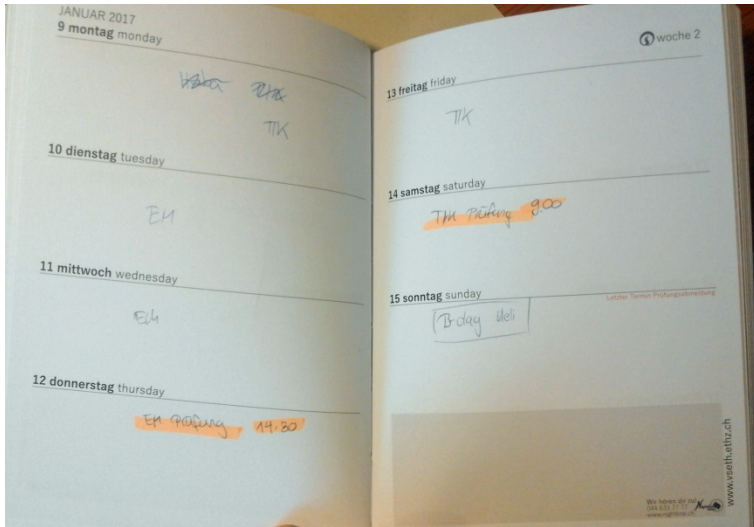 JANUAR 2017
9 montag monday
TIK
10 dienstag tuesday
EM
11 mittwoch wednesday
EM
12 donnerstag thursday
EM Prüfung 14.30
woche 2
13 freitag friday
TIK
14 samstag saturday
TIK Prüfung 9.00
15 sonntag sunday
Letzter Termin Prüfungsabmeldung
B-day Ueli
www.vseth.ethz.ch
Wir hören dir zu!
044 633 77 77
www.nightline.ch